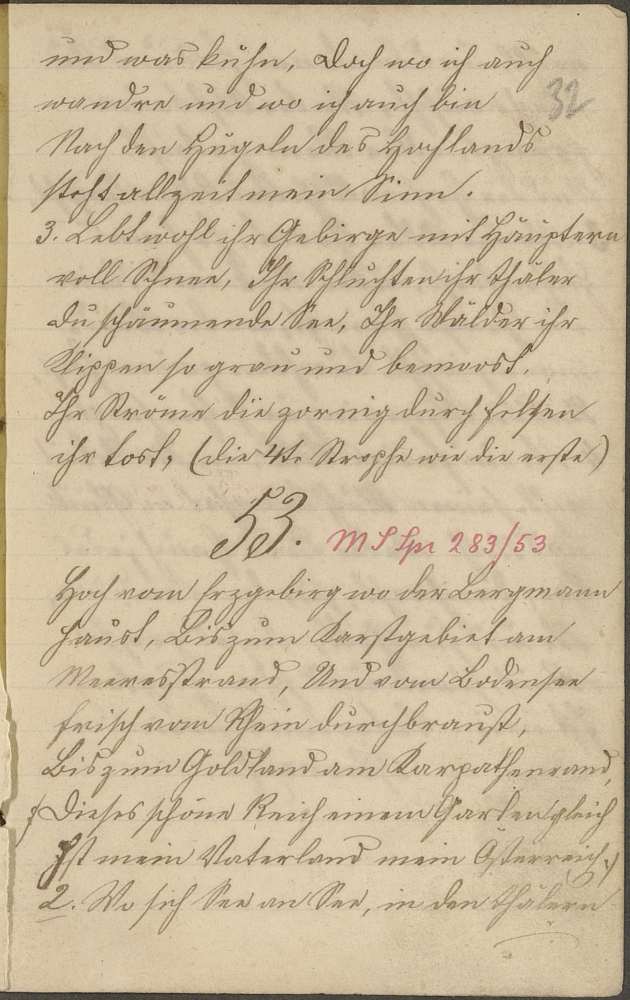 und was kühn, Doch wo ich auch
32
wandre und wo ich auch bin
Nach den Hügeln des Hochlands
steht allzeit mein Sinn.
3. Lebt wohl ihr Gebirge mit Häuptern
voll Schnee, Ihr Schluchten ihr Thäler
du schäumende See, Ihr Wälder ihr
Klippen so grau und bemoost,
Ihr Ströme die zornig durch Felsen
ihr tost, (die 4te Strophe wie die erste)
53. M S Spr 283/53
Hoch vom Erzgebirg wo der Bergmann
haust, Bis zum Karstgebiet am
Meeresstrand, Und vom Bodensee
frisch vom Rhein durchbraust,
Bis zum Goldland am Karpathenrand,
/: Dieses schöne Reich einem Garten gleich
Ist mein Vaterland mein Österreich :/
2. Wo sich See an See, in den Thälern